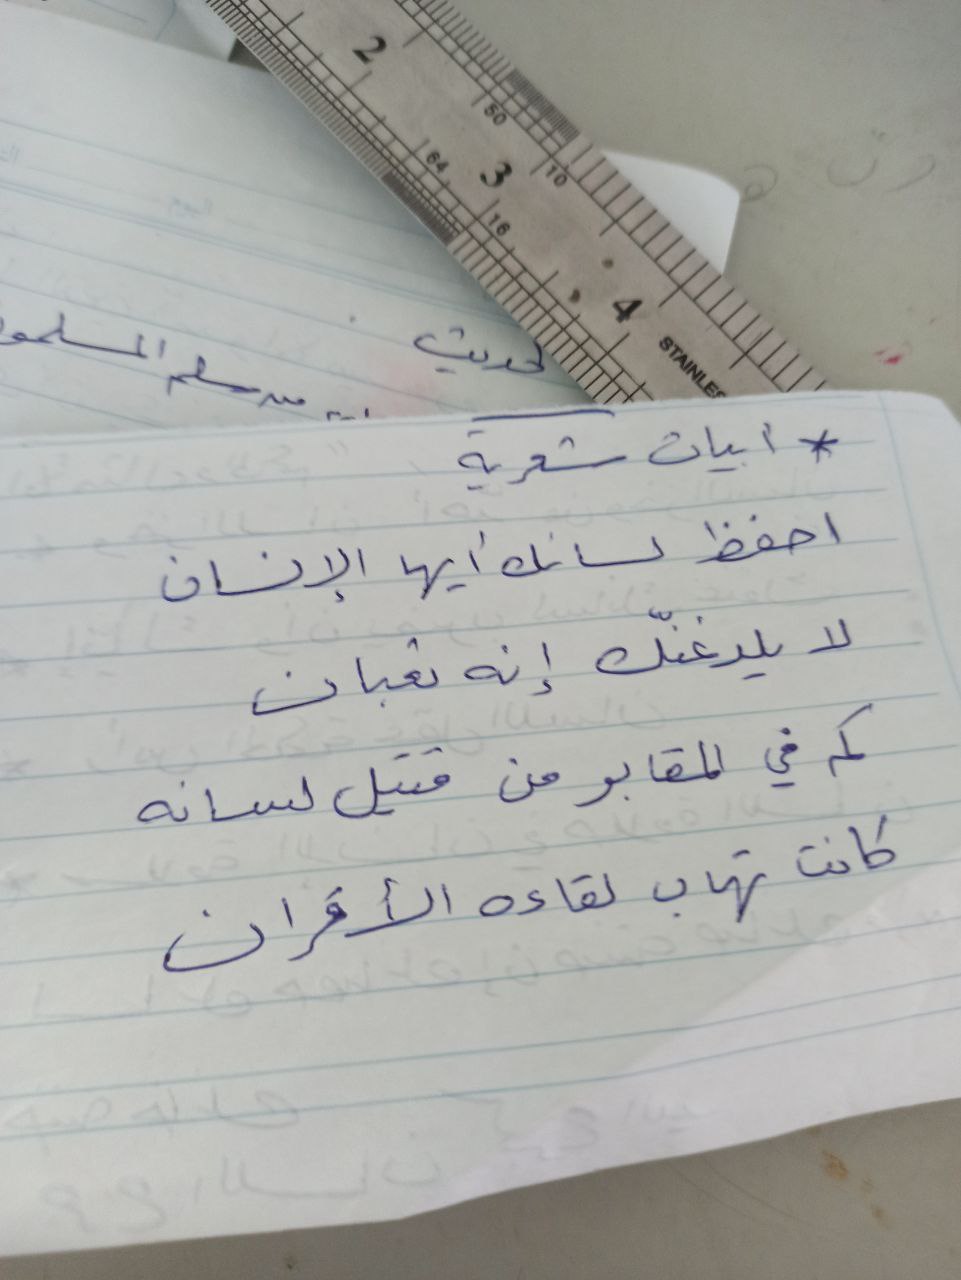 2
50
64
3
10
16
4
STAINLES
الحديث
من سلم المسلمو
* ابيات شعرية
احفظ لسانك أيها الإنسان
لا يلدغنّك إنه ثعبان
كم في المقابر من قتيل لسانه
كانت تهاب لقاءه الأقران